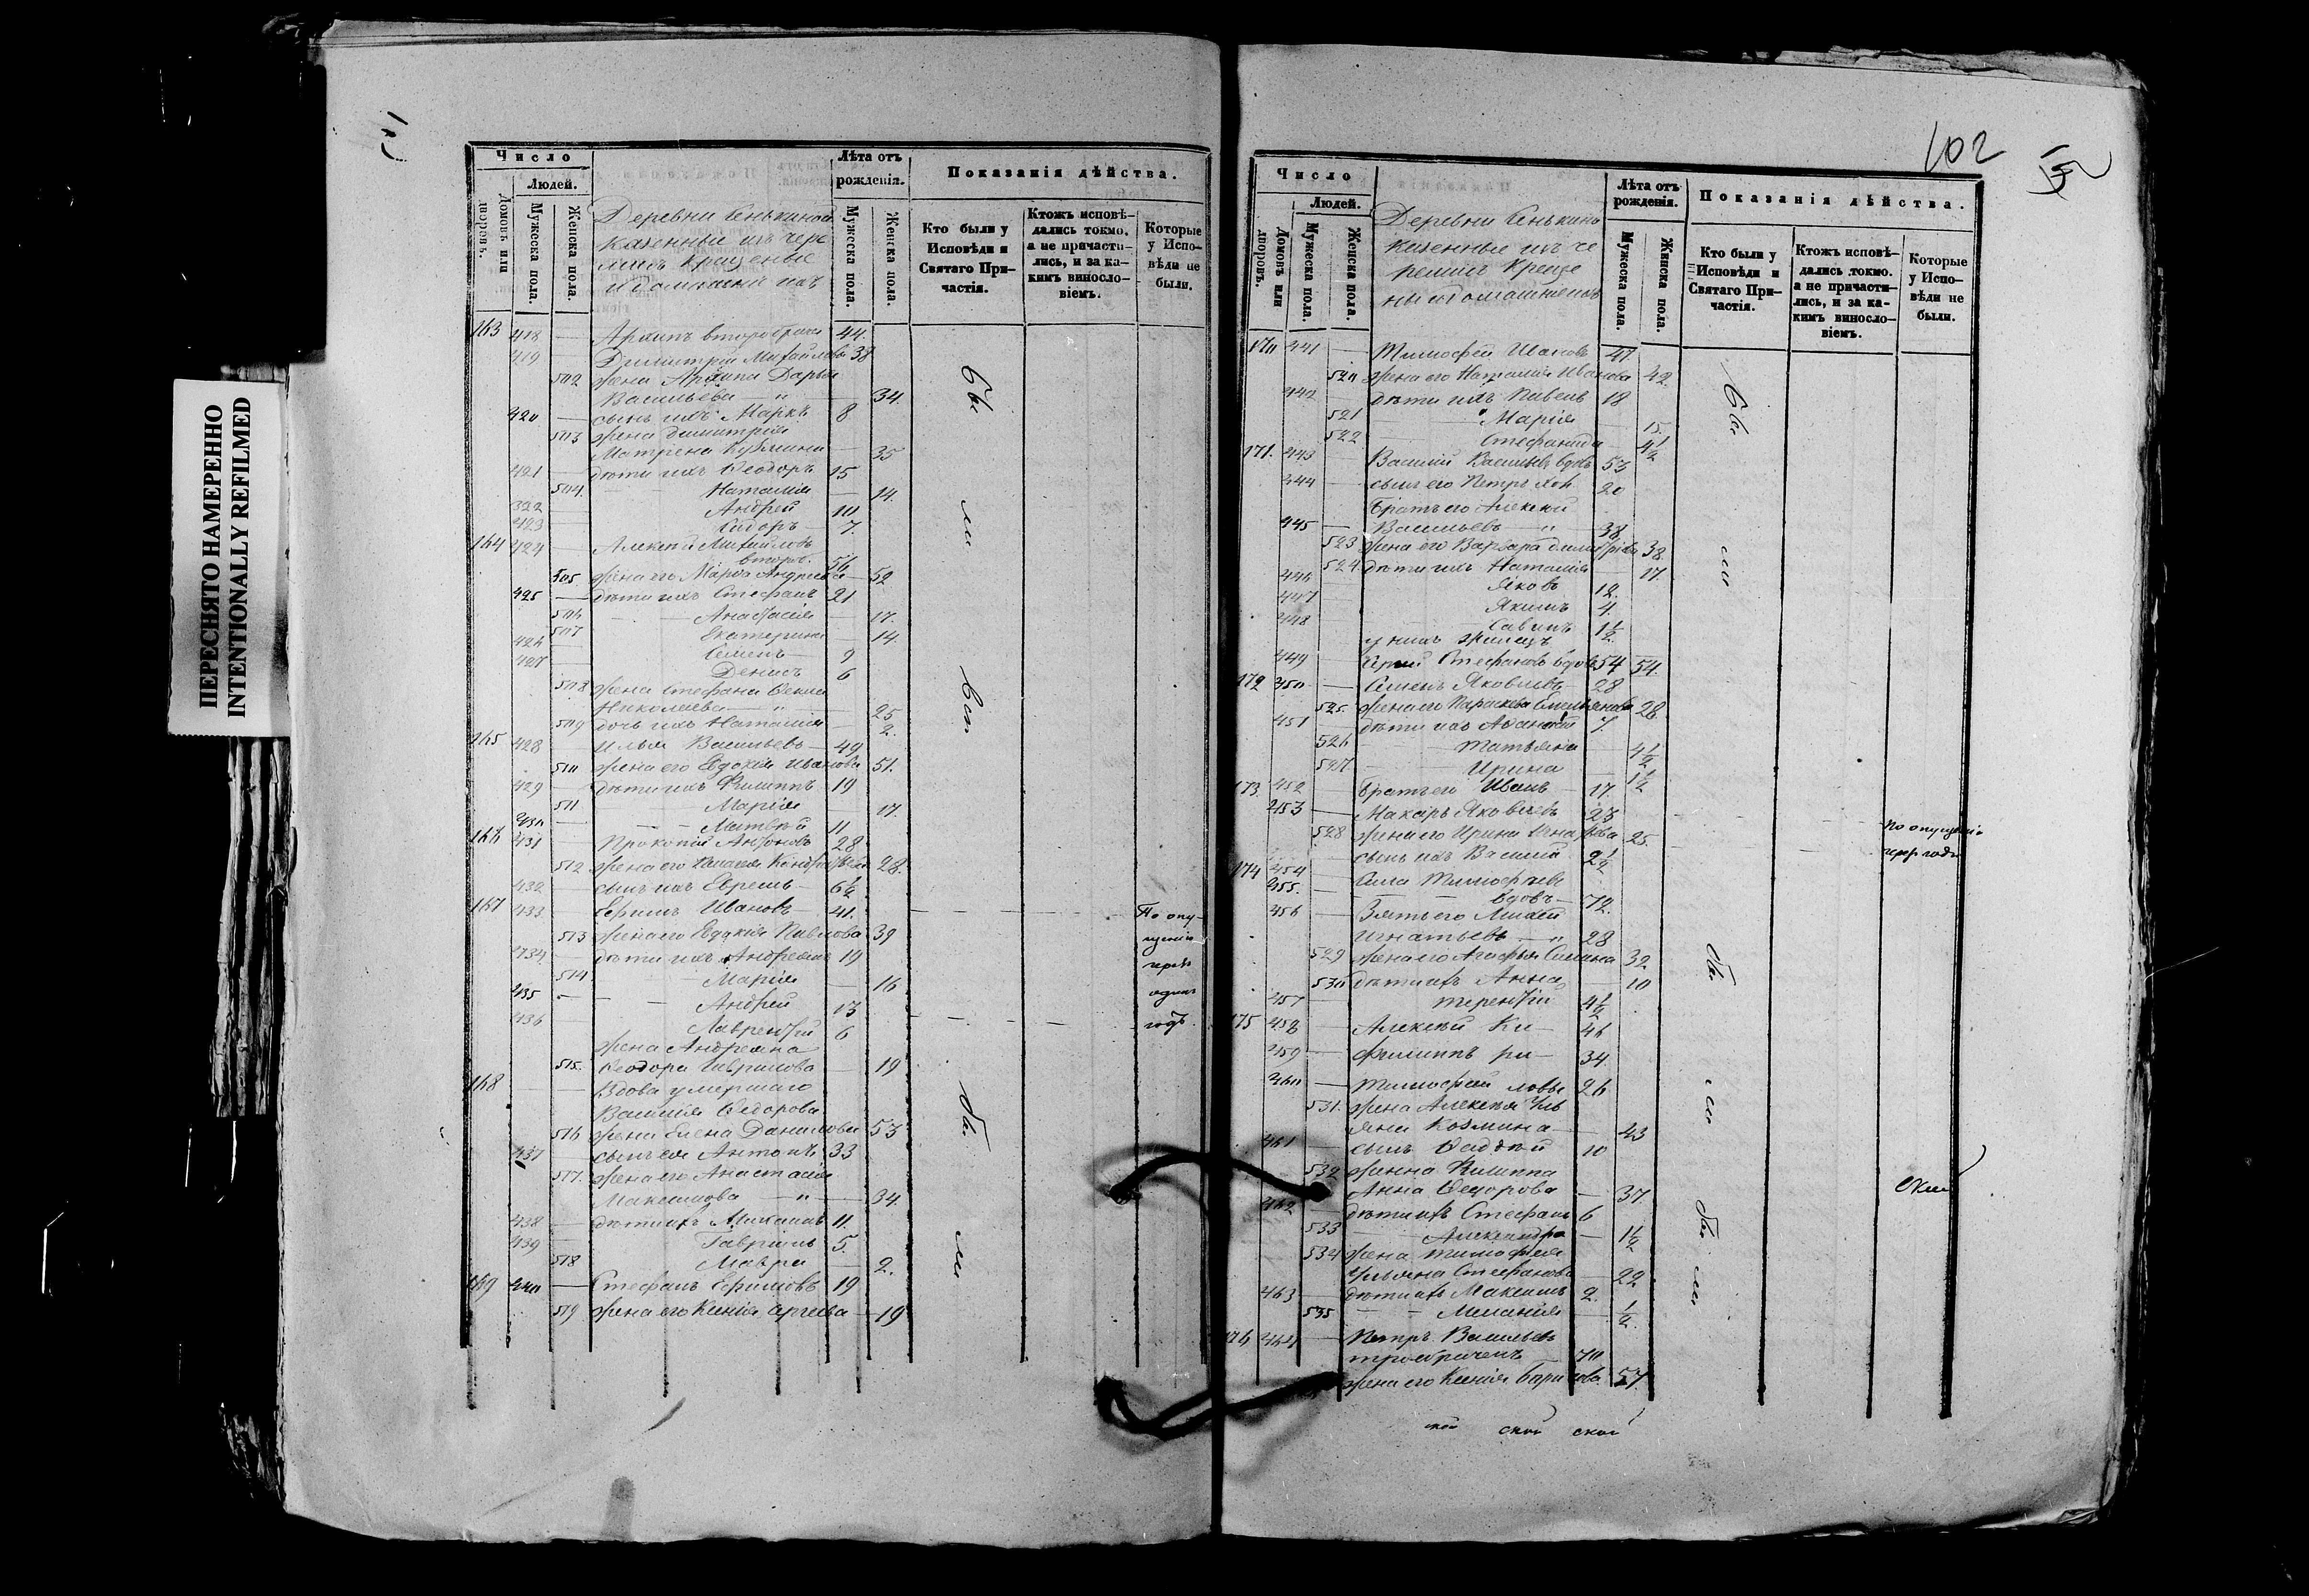 ПЕРЕСНЯТО НАМЕРЕННО
INTENTIONALLY REFILMED
Число
Людей.
Домовъ или дворовъ.
Мужеска пола.
Женска пола.
Деревни Сенькиной
казенные изъ чере
мисъ крещеные
и домашніи ихъ
Лѣта отъ рожденія.
Мужеска пола.
Женска пола.
Показанія дѣйства.
Кто были у Исповѣди и Святаго Причастія.
Ктожъ исповѣдались токмо, а не причастились, и за какимъ винословіемъ.
Которые у Исповѣди не были.
163 418 — Архипъ второбрачн 44.
419 Димитрій Михайловы 38
502 жена Архипа Дарья
Васильева — „ — 34.
420 — сынъ ихъ Маркъ 8
503 жена Димитрія
Матрена Кузмина — 35
421 — дѣти ихъ Ѳеодоръ 15
504. — Наталія — 14.
322 Андрей 10
423 Сидоръ — 7.
164 424 — Алексѣй Михайловъ
вторбр. 56
505. жена его Марѳа Андреева — 52
425 — дѣти ихъ Стефанъ 21
506 — Анастасія — 17.
507 Екатерина — 14
426 Семенъ — 9
427 — Денисъ 6
508 жена Стефана Ѳекла
Николаева — „ — 25
509 дочь ихъ Наталія — 2.
165 428 — Илья Васильевъ — 49
510 жена его Евдокія Иванова 51.
429 — дѣти ихъ Филиппъ 19
511 Марія — 17.
430 — Матвѣй 11
166 431 — Прокопій Антоновъ 28
512 жена его Пелагея Кондратьева 28.
432 — сынъ ихъ Ефремъ — 6½
167 433 — Ефимъ Ивановъ — 41.
По опу-
513 жена его Евдокія Павлова 39
щенію
434 — дѣти ихъ Андреянъ 19
чрезъ
514. — Марія — 16
одинъ
435 — Андрей 13
годъ.
436 Лаврентій 6
жена Андреяна
515. Ѳеодора Гаврилова — 19
168 — Вдова умершаго
Василія Ѳедорова
516 жена Елена Данилова 53
437 — сынъ ея Антонъ 33
517. жена его Анастасія
Максимова — „ — 34.
438 — дѣти ихъ Михаилъ 11.
439 — Гавріилъ 5.
518 Мавра — 2.
169 440 — Стефанъ Ефимовъ 19
519 жена его Ксенія Сергѣева — 19
бы
ли
всѣ
бы
ли
102
Число
Людей.
Домовъ или дворовъ.
Мужеска пола.
Женска пола.
Деревни Сенькино
казенные изъ че
ремисъ Креще
ны и домашнеихъ
Лѣта отъ рожденія.
Мужеска пола.
Женска пола.
Показанія дѣйства.
Кто были у Исповѣди и Святаго Причастія.
Ктожъ исповѣдались токмо, а не причастились, и за какимъ винословіемъ.
Которые у Исповѣди не были.
170 441 — Тимофей Ивановъ 47.
520 жена его Наталія Иванова 42.
442 — дѣти ихъ Павелъ 18
521 Марія — 15.
522 Стефанида — 4½
171. 443 — Василій Васильевъ вдовъ 53
444 — сынъ его Петръ хол. 20
Братъ его Алексѣй
445 — Васильевъ — „ — 38
523 жена его Варвара Димитріева 38.
524. дѣти ихъ Наталія — 17.
446 Яковъ 12.
447 Якимъ 4.
448 Савинъ 1½
у нихъ жилецъ
449 — Стефановъ вдовъ 54 54.
172 450 — Семенъ Яковлевъ 28
525. жена его Параскева Емельянова 28.
451 — дѣти ихъ Аѳанасій 7.
526 — Татьяна — 4½
527 — Ирина — 1½
173. 452 — Братъ его Иванъ — 17.
453 — Макаръ Яковлевъ 23
528 жена его Ирина Игнатьева 25.
по опущенію
сынъ ихъ Василій 2½
чрез годъ
174 454 — Сила Тимофѣевъ
455. — вдовъ — 72.
456 — Зять его Михей
Игнатьевъ — „ 28
529 жена его Агафья Силина 32
530 дѣти ихъ Анна — 10
457 — Терентій 4½
175 458 — Алексѣй Ки— 46
459 — Филиппъ ри— 34.
460 — Тимофей ловы 26
531. жена Алексѣя Улья
яна Козмина — 43
461 — сынъ Ѳаддѣй 10
532 жена Филиппа
Анна Ѳедорова — 37.
462 — дѣти ихъ Стефанъ 6
533 — Александра — 1½
534 жена Тимофея
Ульяна Стефанова — 22
463 — дѣти ихъ Максимъ 2.
535 — Меланія — ½
176 464 — Петръ Васильевъ
троебраченъ 70
жена его Ксенія Борисова 57.
бы
ли
бы
ли
бы
ли
ской ской